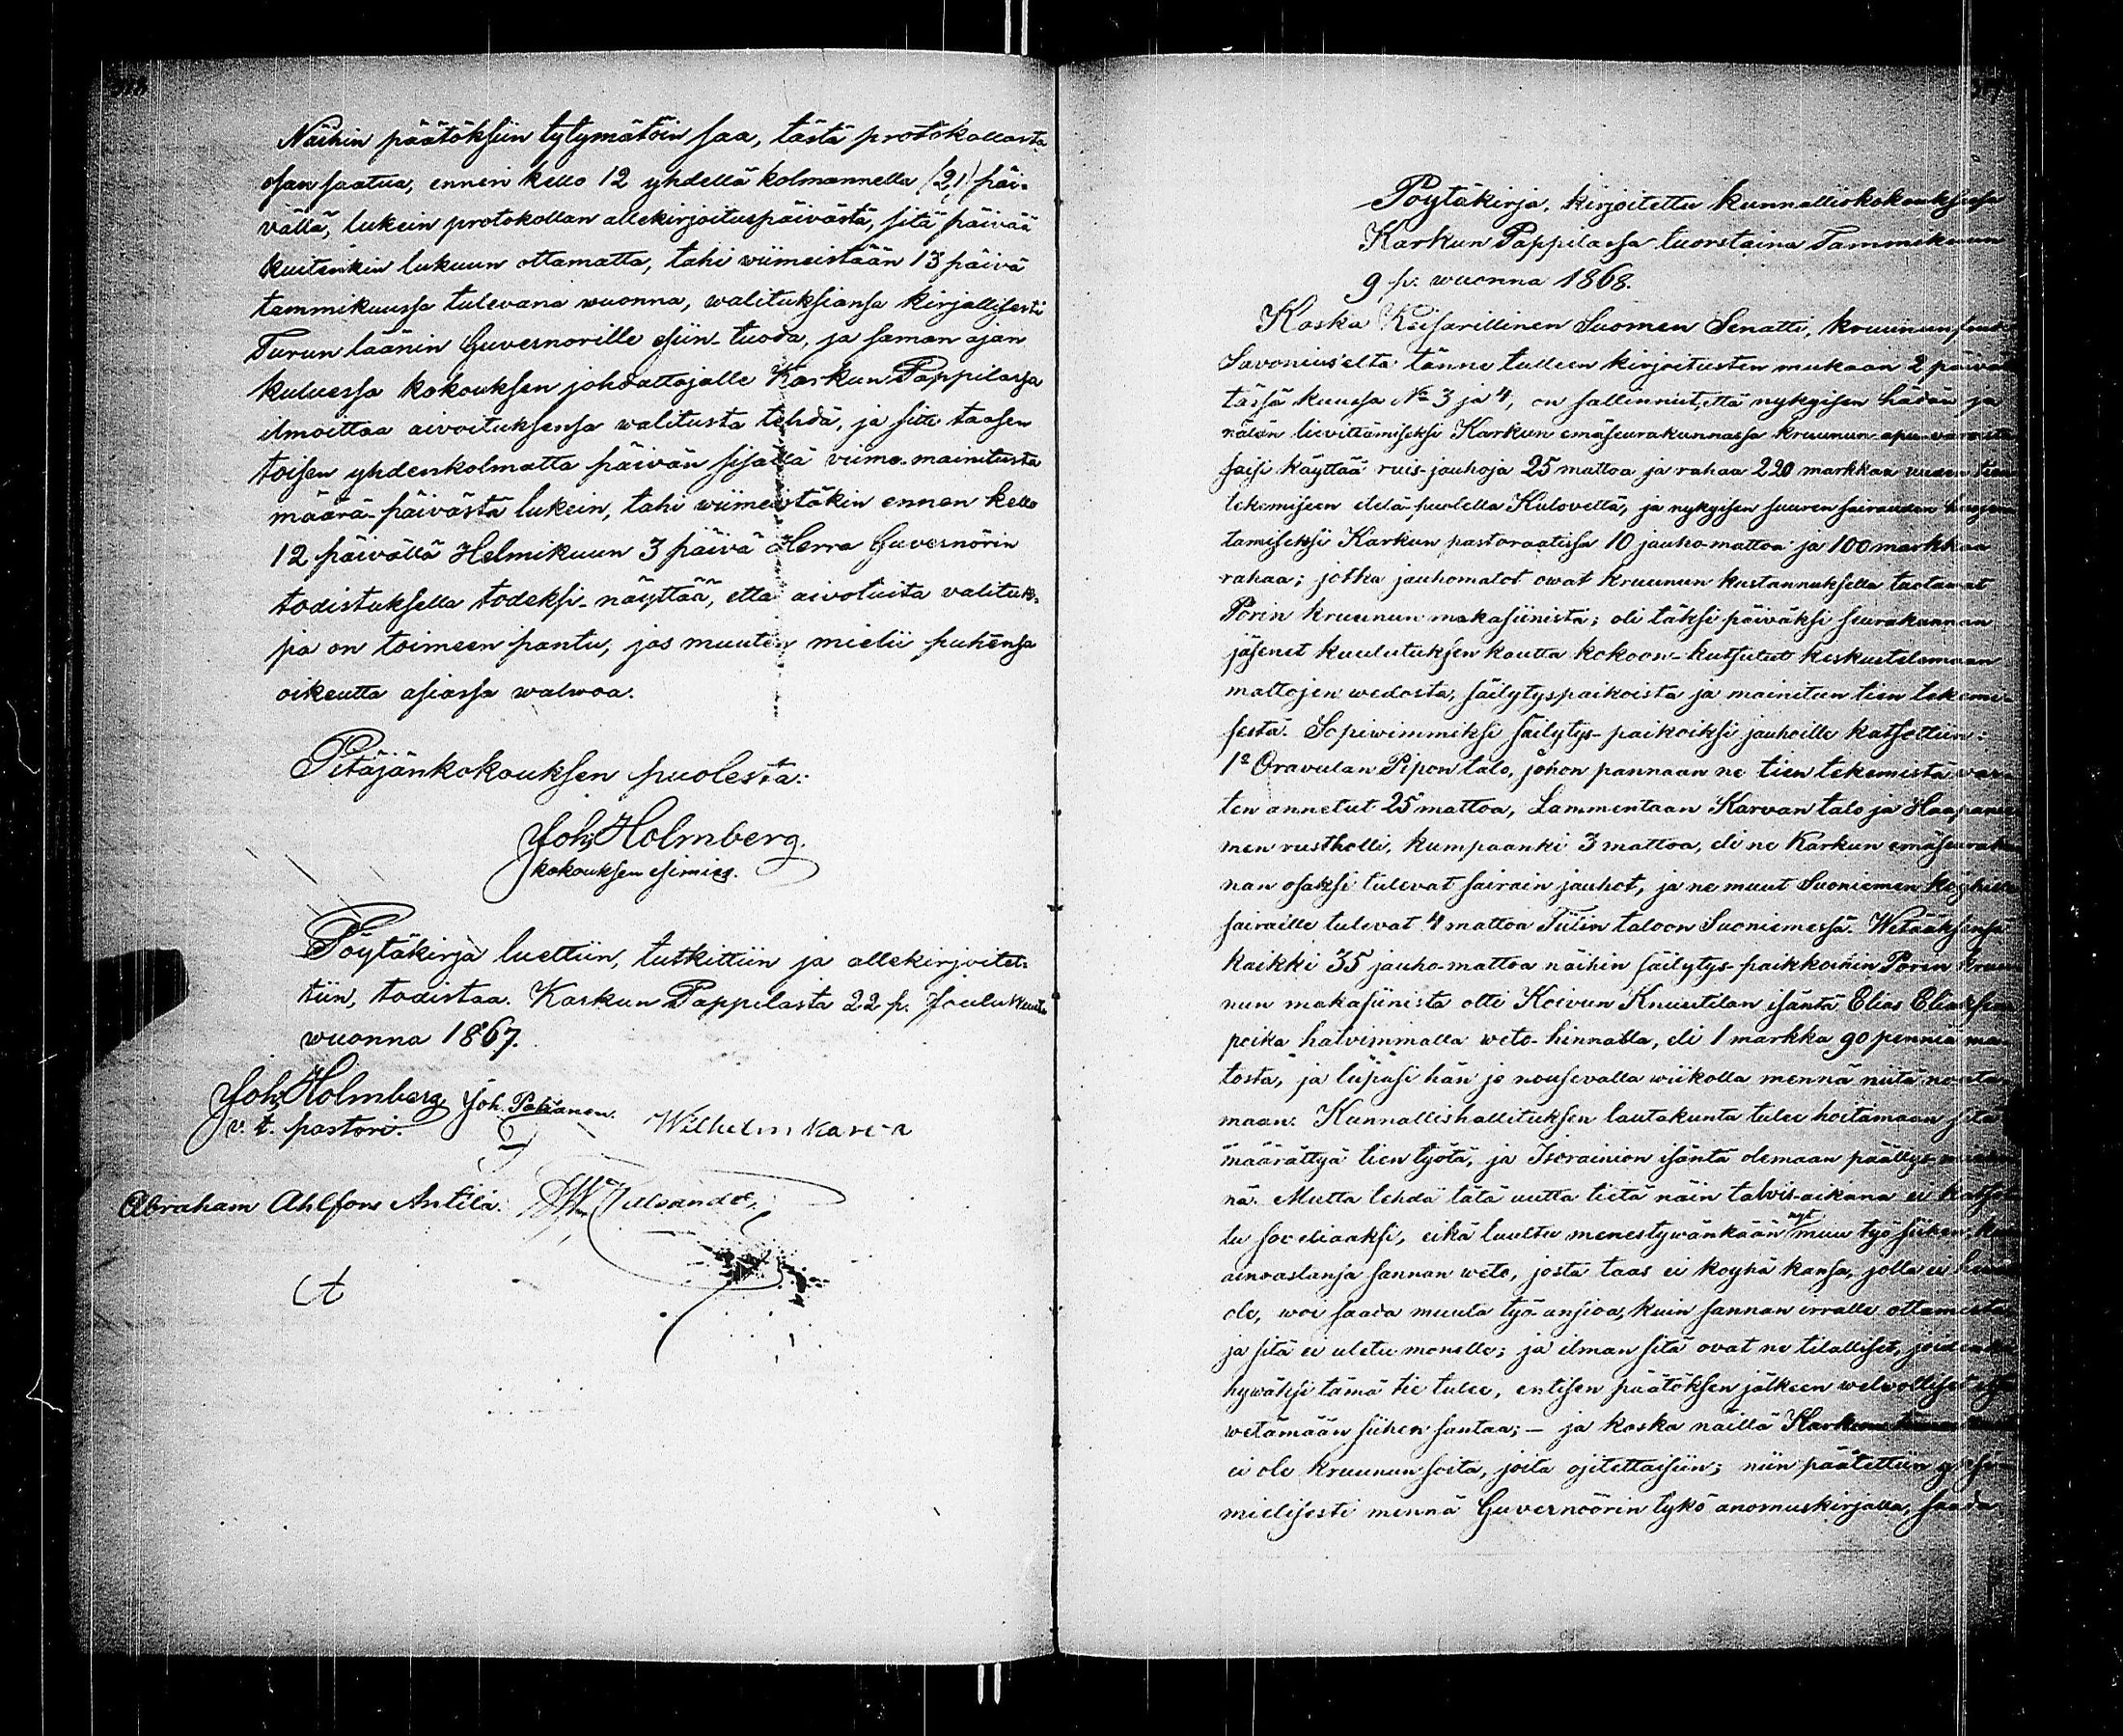 Näihin päätöksiin tytymätöin saa, tästä protokollasta
osan saatua, ennen kello 12 yhdellä kolmannella (21) päi-
vällä, lukein protokollan allekirjoituspäivästä, sitä päivää
kuitenkin lukuun ottamatta, tahi wiimeistään 13 päivä
tammikuussa tulevana wuonna, walituksiansa kirjallisesti
Turun läänin Guvernorille esiin-tuoda, ja saman ajan
kuluessa kokouksen johdattajalle Karkun Pappilassa
ilmoittaa aivoituksensa walitusta tehdä, ja sitte taasen
toisen yhdenkolmatta päivän sisällä viime-mainitusta
määrä-päivästä lukein, tahi wiimeistäkin ennen kello
12 päivällä Helmikuun 3 päivä Herra Guvernörin
todistuksella todeksi-näyttää, että aivotuita valituk-
sia on toimeen pantu, jos muuten mielii puhensa
oikeutta asiassa walwoa.
Pitäjänkokouksen puolesta:
Joh. Holmberg.
kokouksen esimies.
Pöytäkirja luettiin, tutkittiin ja allekirjoitet-
tiin, todistaa. Karkun Pappilasta 22 p. Joulukuuta
wuonna 1867.
Joh. Holmberg Joh. Pakanen.
v. t. pastori. Wilhelm Karva
Abraham Ahlfons Antila.
Pöytäkirja, kirjoitettu kunnalliskokouksessa
Karkun Pappilassa tuorstaina Tammikuun
9 p. wuonna 1868.
Koska Keisarillinen Suomen Senatti, kruunun
Savonius'elta tänne tulleen kirjoitusten mukaan 2 päivä
tässä kuussa No 3 ja 4, on sallinnut, että nykyisen hädän ja
nälän lievittämiseksi Karkun emäseurakunnassa kruunun apu-varoista
saisi käyttää ruis-jauhoja 25 mattoa ja rahaa 220 markkaa uuden tien
tekemiseen etelä-puolella Kulovettä, ja nykyisen suuren sairauden
tamiseksi Karkun pastoraatissa 10 jauho-mattoa ja 100 markkaa
rahaa; jotka jauhomatot owat kruunun kustannuksella tuotavat
Porin kruunun makasiinista; oli täksi päiväksi seurakunnan
jäsenet kuulutuksen kautta kokoon-kutsutut keskustelemaan
mattojen wedosta, säilytyspaikoista ja mainitun tien tekemi-
sestä. Sopiwimmiksi säilytys-paikoiksi jauhoille katsottiin:
1o Oravulan Pipon talo, johon pannaan ne tien tekemistä var-
ten annetut 25 mattoa, Lammentaan Karvan talo ja Haapanie-
men rustholli, kumpaanki 3 mattoa, eli ne Karkun emäseurakun-
nan osaksi tulevat sairain jauhot, ja ne muut Suoniemen köyhille
sairaille tulevat 4 mattoa Tiilin taloon Suoniemessä. Wetääksensä
kaikki 35 jauho-mattoa näihin säilytys-paikkoihin Porin kruu-
nun makasiinista otti Koivun Knuutilan isäntä Elias Eliaksen
poika halvimmalla weto-hinnalla, eli 1 markka 90 penniä ma-
tosta, ja lupasi hän jo nousevalla wiikolla mennä niitä nouta-
maan. Kunnallishallituksen lautakunta tulee hoitamaan sitä
määrättyä tien työtä, ja Isorainion isäntä olemaan päällys-
nä. Mutta tehdä tätä uutta tietä näin talvis-aikana ei katsot-
tu soveliaaksi, eikä luultu menestywänkään nyt muu työ siihen, kuin
ainoastansa sannan weto, josta taas ei köyhä kansa, jolla ei
ole, woi saada muuta työ-ansioa, kuin sannan irralle ottamista
ja sitä ei uletu monelle; ja ilman sitä ovat ne tilalliset, joidenka
hywäksi tämä tie tulee, entisen päätöksen jälkeen welvolliset
wetämään siihen santaa; – ja koska näillä
ei ole kruunun soita, joita ojitettaisiin; niin päätettiin yksi-
mielisesti mennä Guvernöörin tykö anomuskirjalla, saada